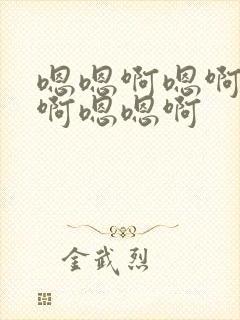 嗯嗯啊嗯啊
啊嗯嗯啊
金武烈